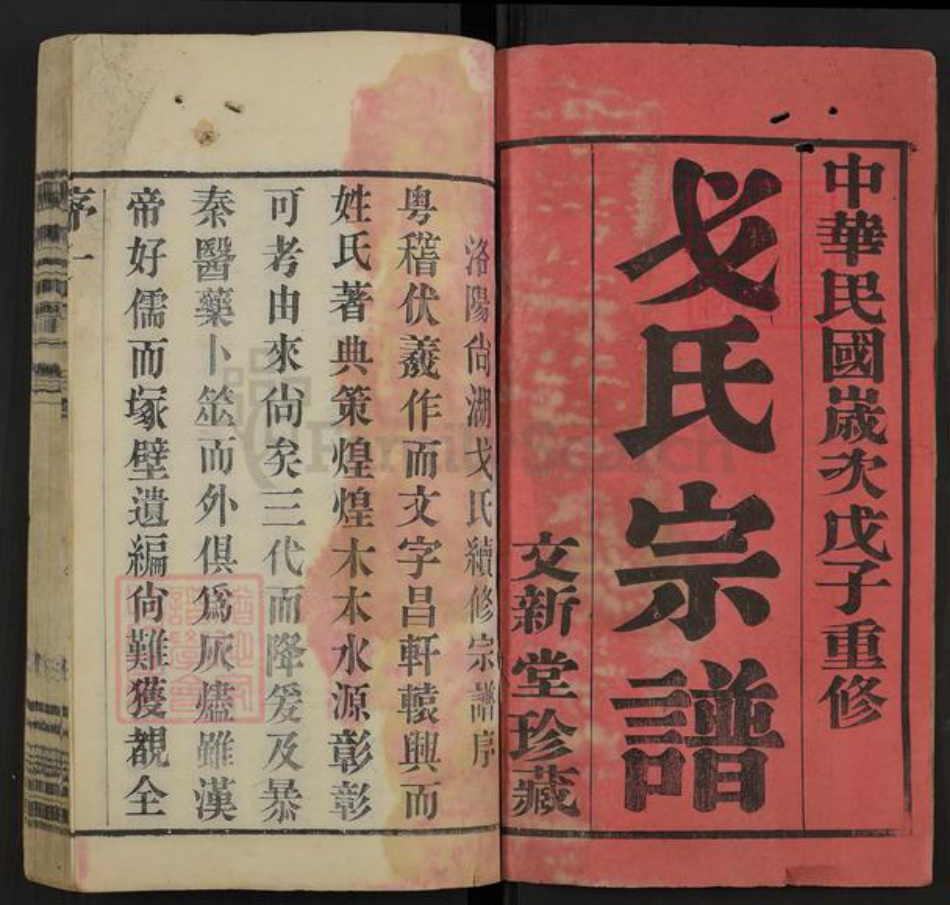 中華民國歲次戊子重修
戈氏宗譜
文新堂珍藏
洛陽尙湖戈氏續修宗譜序
粵稽伏羲作而文字昌軒轅興而
姓氏著典策煌煌木本水源彰彰
可考由來尙矣三代而降爰及暴
秦醫藥卜筮而外俱爲灰燼雖漢
帝好儒而塚壁遺編尙難獲覩全
序 一
FamilySearch